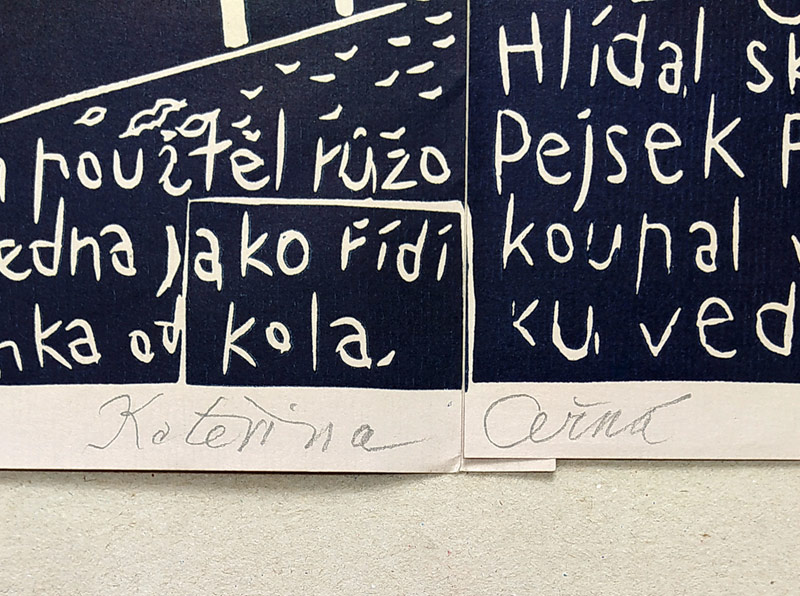 pouštěl růžo
edna jako řídí
nka od kola.
Hlídal sk
Pejsek P
kounal v
ku, ved
Kateřina Černá